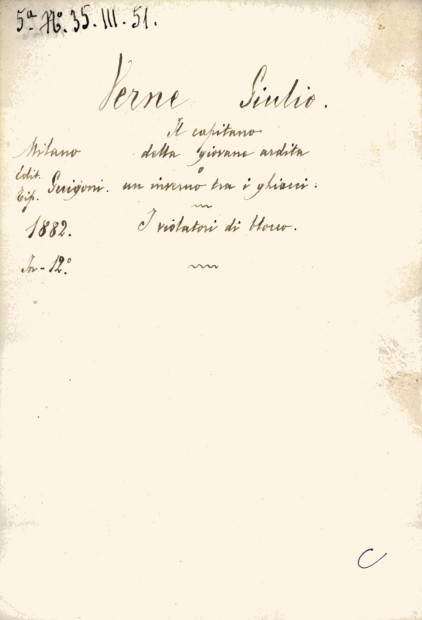 5ª Nº. 35. III. 51.
Verne Giulio.
Il capitano
Milano della giovane ardita
o
Edit. Tip. Guigoni. un inverno tra i ghiacci.
1882. I violatori di blocco.
In-12º.
C